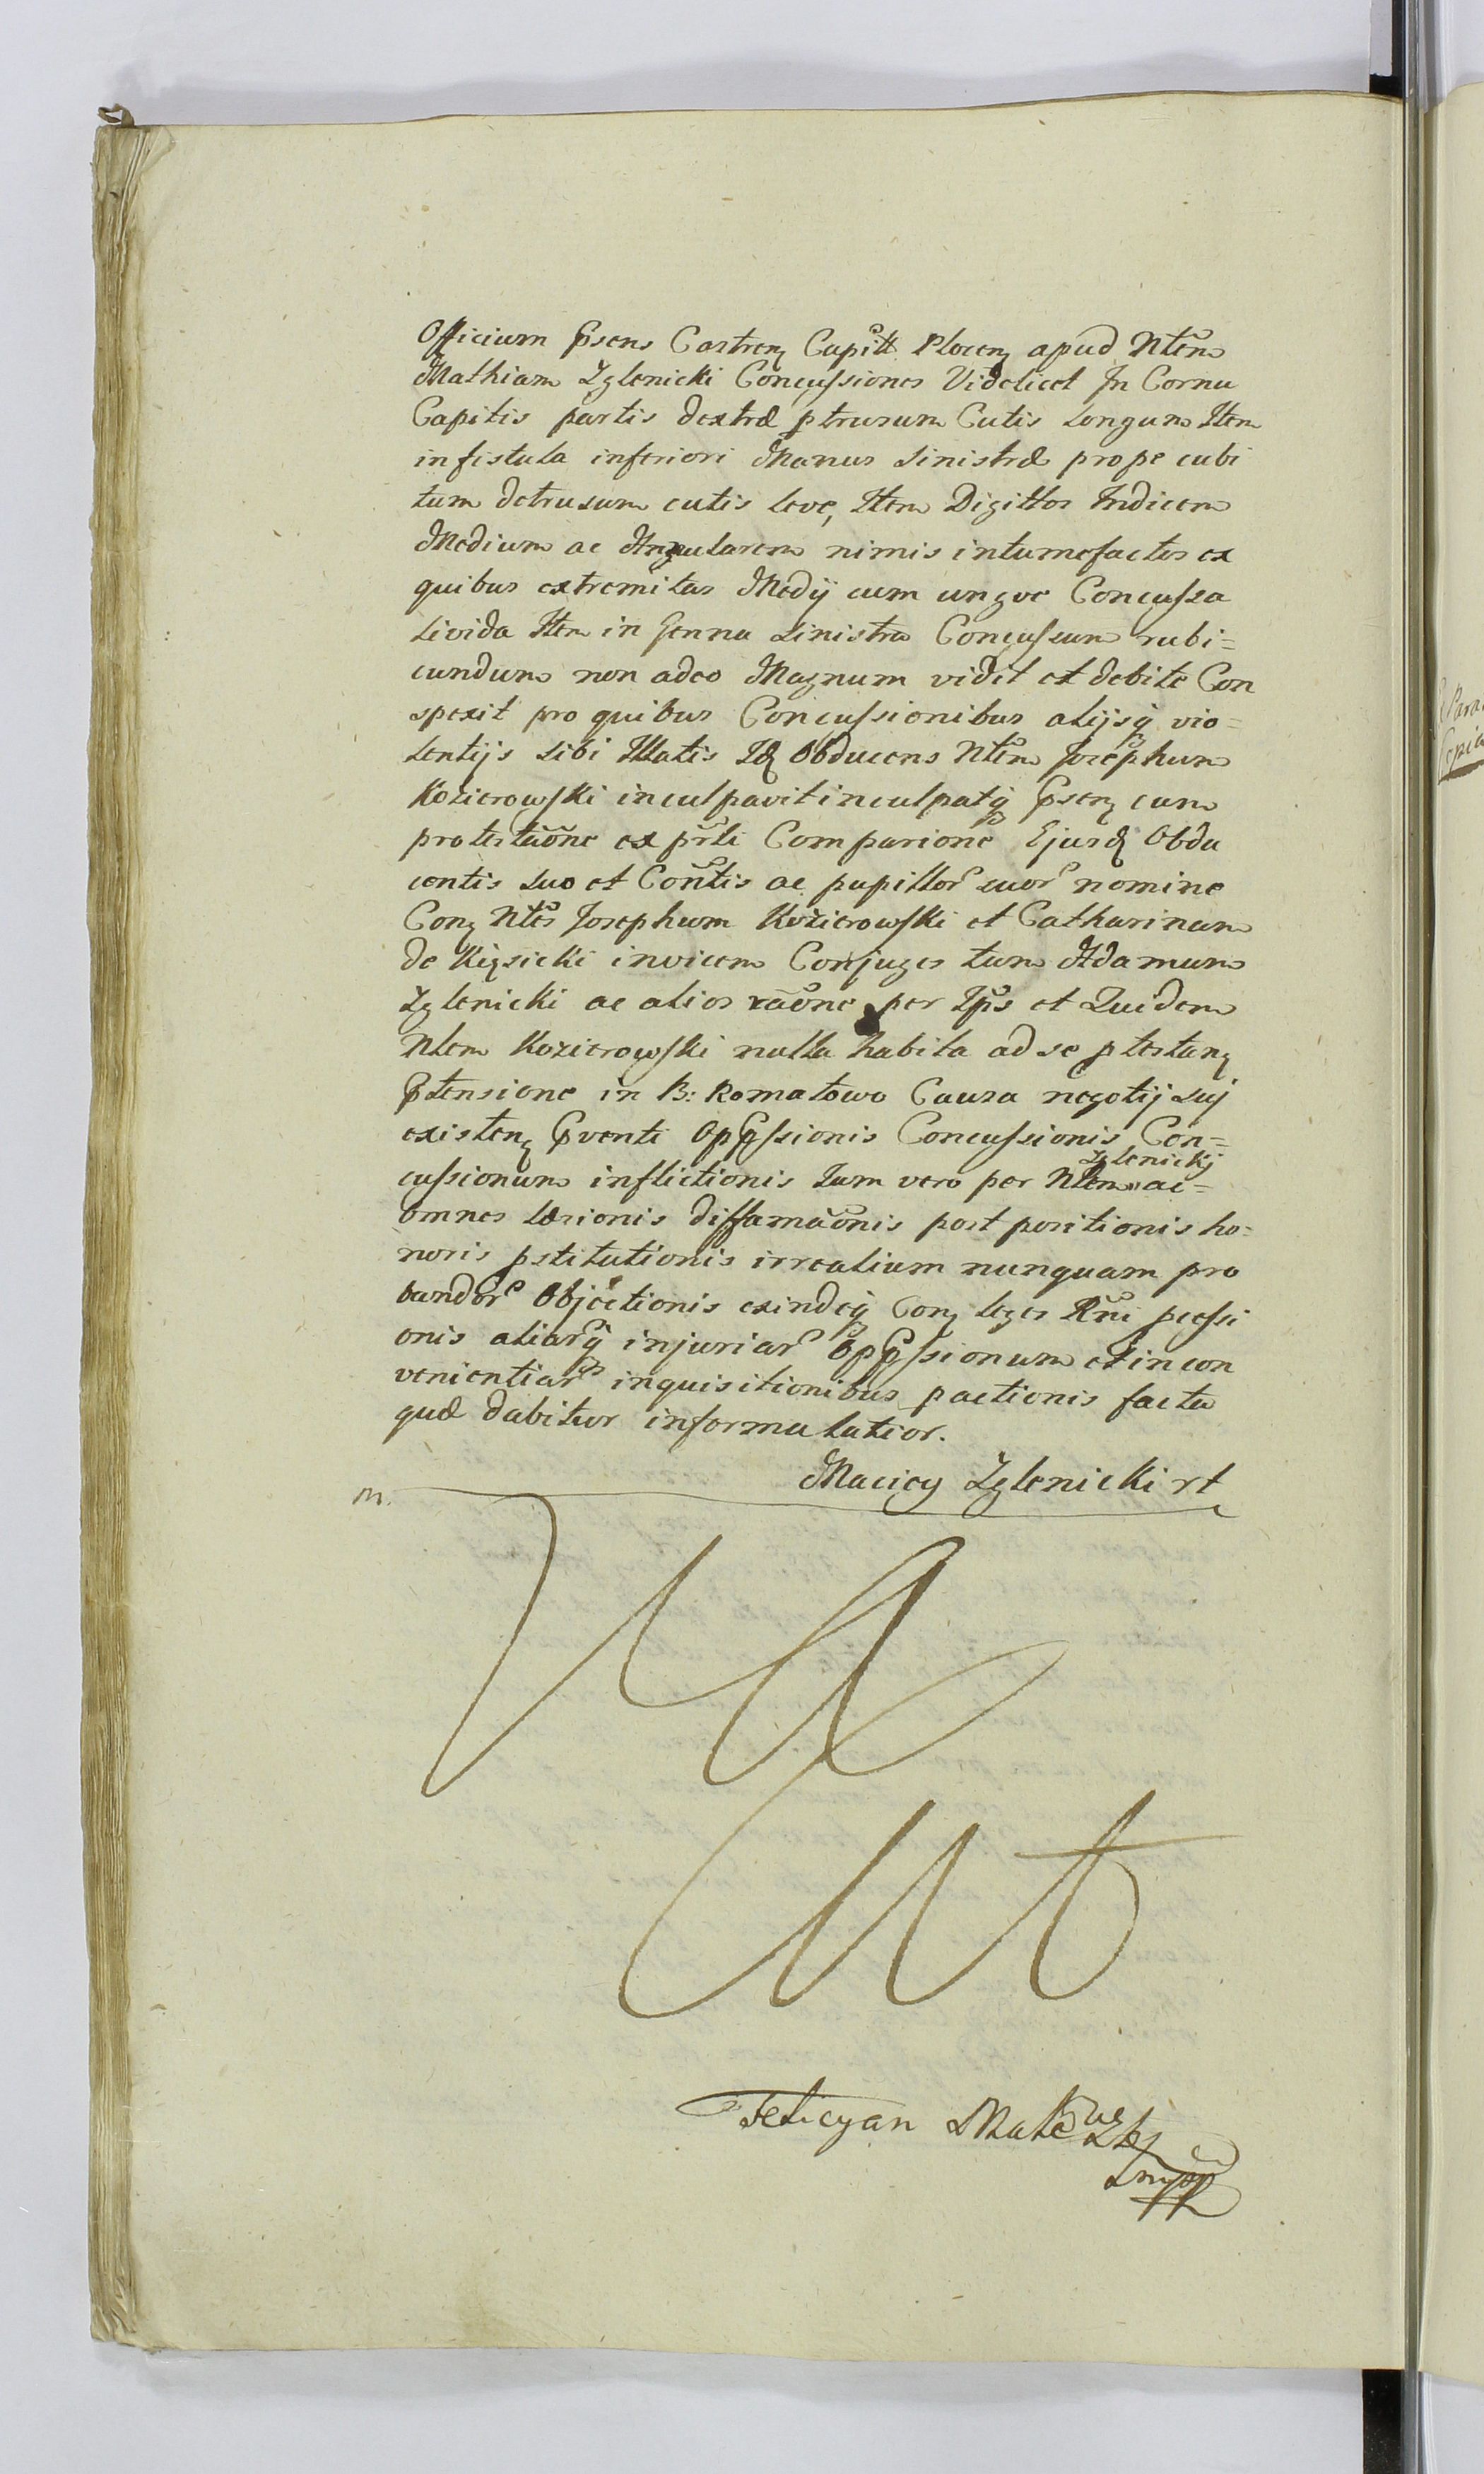 Officium Psens Castren Capitt Plocen apud Ntem
Mathiam Zglenicki Concussiones Videlicet In Cornu
Capitis partis dextræ ptrusum Cutis longum Item
in fistula inferiori Manus Sinistræ prope cubi
tum detrusum cutis leve, Item Digittos Indicem
Medium ac Angularem nimis intumefactos ex
quibus extremitas Medij cum ungve Concussa
livida Item in Genna Sinistra Concussum rubi=
cundum non adeo Magnum vidit et debite Con
spexit pro quibus Concussionibus alijsq vio=
lentijs sibi Illatis Id Obducens Ntem Josephum
Kozierowski inculpavit inculpatq Psen cum
protestaone ex prti Comparione Ejusd Obdu
centis suo et Contis ac pupillor suor nomine
Con Ntes Josephum Kozierowski et Catharinam
de Kięsicki invicem Conjuges tum Adamum
Zglenicki ac alios raone per Ips et Quidem
Ntem Kozierowski nulla habita ad se ptestan
Ptensione in B: Romatowo Causa negotij sui
existen Pventi Oppssionis Concussionis Con=
cussionum inflictionis Tum vero per Ntem Zglenickij ac=
omnes læsionis diffamaonis post positionis ho=
noris pstitutionis irrealium nunquam pro
bandor Objectionis exindeq Con leges Rni pcessi
onis aliarq injuriar Oppssionum et incon
venientiar inquisitionibus pactionis facta
quæ dabitur informa latior.
Maciey Zglenicki rt
m.
Felicyan